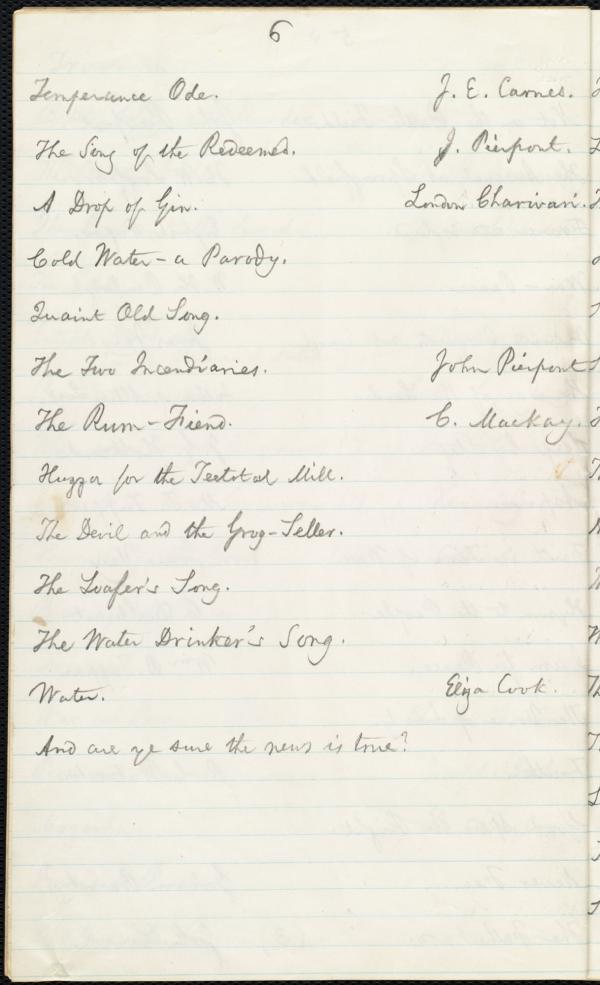 6
Temperance Ode. J. E. Carnes.
The Song of the Redeemed. J. Pierpont.
A Drop of Gin. London Charivari.
Cold Water - a Parody.
Quaint Old Song.
The Two Incendiaries. John Pierpont
The Rum-Fiend. C. Mackay.
Huzza for the Teetotal Mill.
The Devil and the Grog-Seller.
The Loafer's Song.
The Water Drinker's Song.
Water. Eliza Cook.
And are ye sure the news is true?